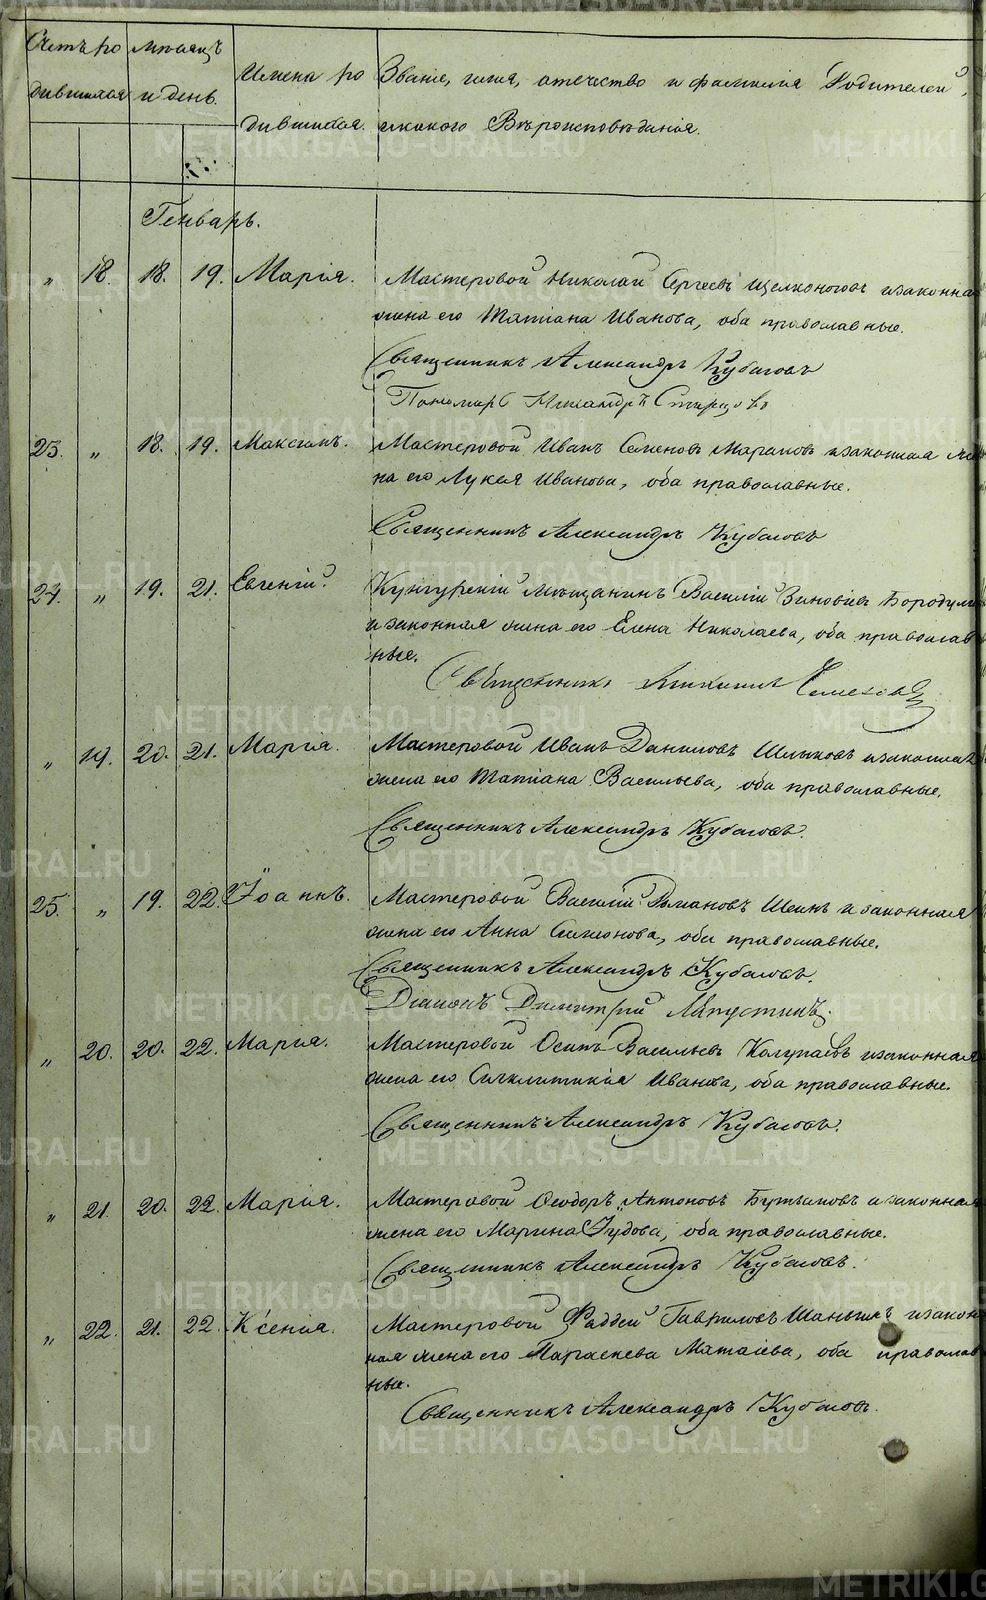 Счетъ ро
дившихся
мѣсяцъ
и день.
Имена ро
дившихся.
Званіе, имя, отчество и фамилія Родителей,
и какого Вѣроисповѣданія.
Генварь.
„ 18. 18. 19. Марія. Мастеровой Николай Сергеевъ Щелконоговъ и законная
жена его Татіана Иванова, оба православные.
Священникъ Александръ Кубасовъ
Пономарь
23. „ 18. 19. Максимъ. Мастеровой Иванъ Семеновъ и законная же
на его Лукея Иванова, оба православные.
Священникъ Александръ Кубасовъ
24. „ 19. 21. Евгеній. Кунгурскій мѣщанинъ Василій Зиновіевъ
и законная жена его Елена Николаева, оба православ
ные.
Священникъ
„ 19. 20. 21. Марія. Мастеровой Иванъ Даниловъ и законная
жена его Татіана Васильева, оба православные.
Священникъ Александръ Кубасовъ.
25. „ 19. 22. Іоаннъ. Мастеровой Василій Романовъ Шеинъ и законная
жена его Анна Симеонова, оба православные.
Священникъ Александръ Кубасовъ.
Діаконъ Димитрій Ляпустинъ.
„ 20. 20. 22. Марія. Мастеровой Осипъ Васильевъ Колупаевъ и законная
жена его Сигклитикія Иванова, оба православные.
Священникъ Александръ Кубасовъ.
„ 21. 20. 22. Марія. Мастеровой Ѳеодоръ Антоновъ и законная
жена его Марина Іудова, оба православные.
Священникъ Александръ Кубасовъ.
„ 22. 21. 22. Ксенія. Мастеровой Фаддей Гавриловъ и закон
ная жена его Параскева Матѳіева, оба православ
ные.
Священникъ Александръ Кубасовъ.
METRIKI.GASO-URAL.RU